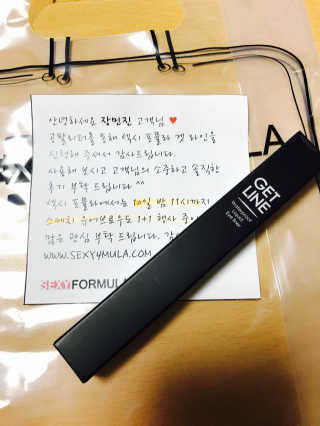 안녕하세요 장민진 고객님 ♥
공팔리터를 통해 섹시 포뮬라 겟 라인을
신청해 주셔서 감사드립니다.
사용해 보시고 고객님의 소중하고 솔직한
후기 부탁 드립니다 ^^
섹시 포뮬라에서는 10일 밤 11시까지
스케치 유어브로우도 1+1 행사 중이
많은 관심 부탁 드립니다. 감
WWW.SEXY4MULA.COM
SEXYFORMULA
GET
LINE
waterproof
Liquid
Eye liner
LA